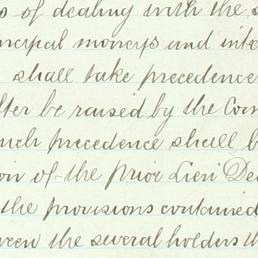 of dealing with the
moneys and
shall take precedence
be raised by the
such precedence shall
of the Prior Lien
the provisions contained
the several holders